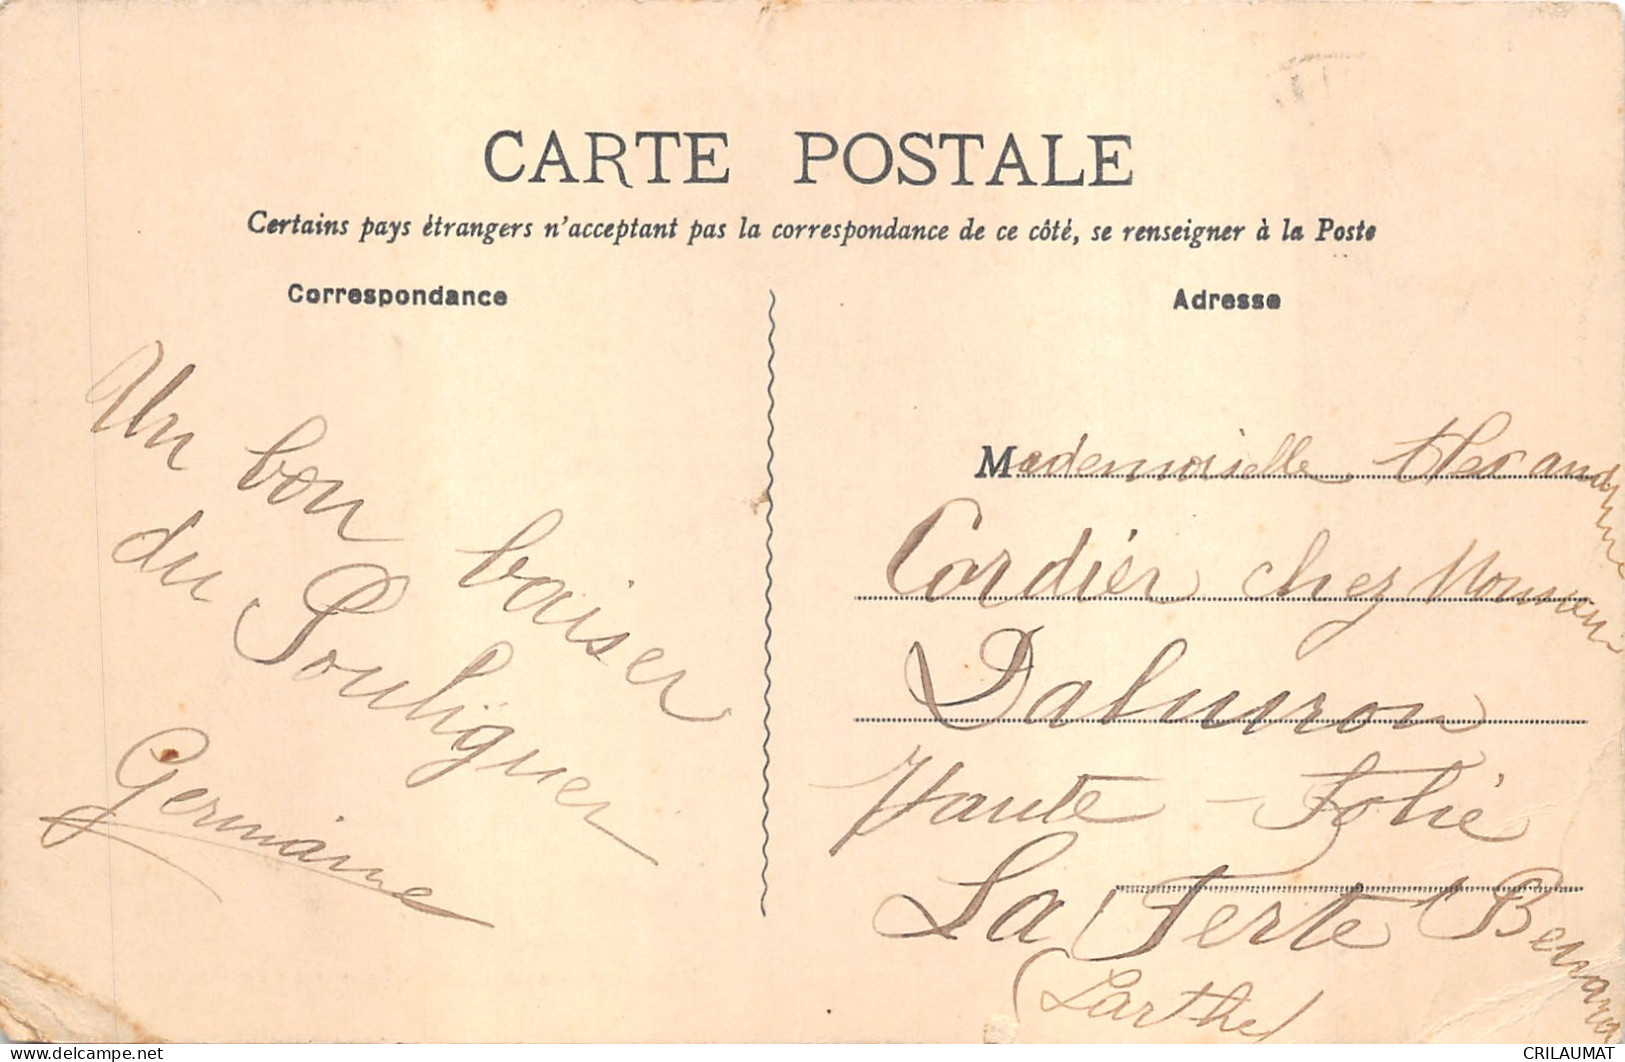 CARTE POSTALE
Certains pays étrangers n'acceptant pas la correspondance de ce côté, se renseigner à la Poste
Correspondance
Un bon baiser
du Pouliguen
Germaine
Adresse
Mademoiselle
Cordier chez Monsieur
Haute-Folie
La Ferte Bernard
(Sarthe)
delcampe.net
CRILAUMAT